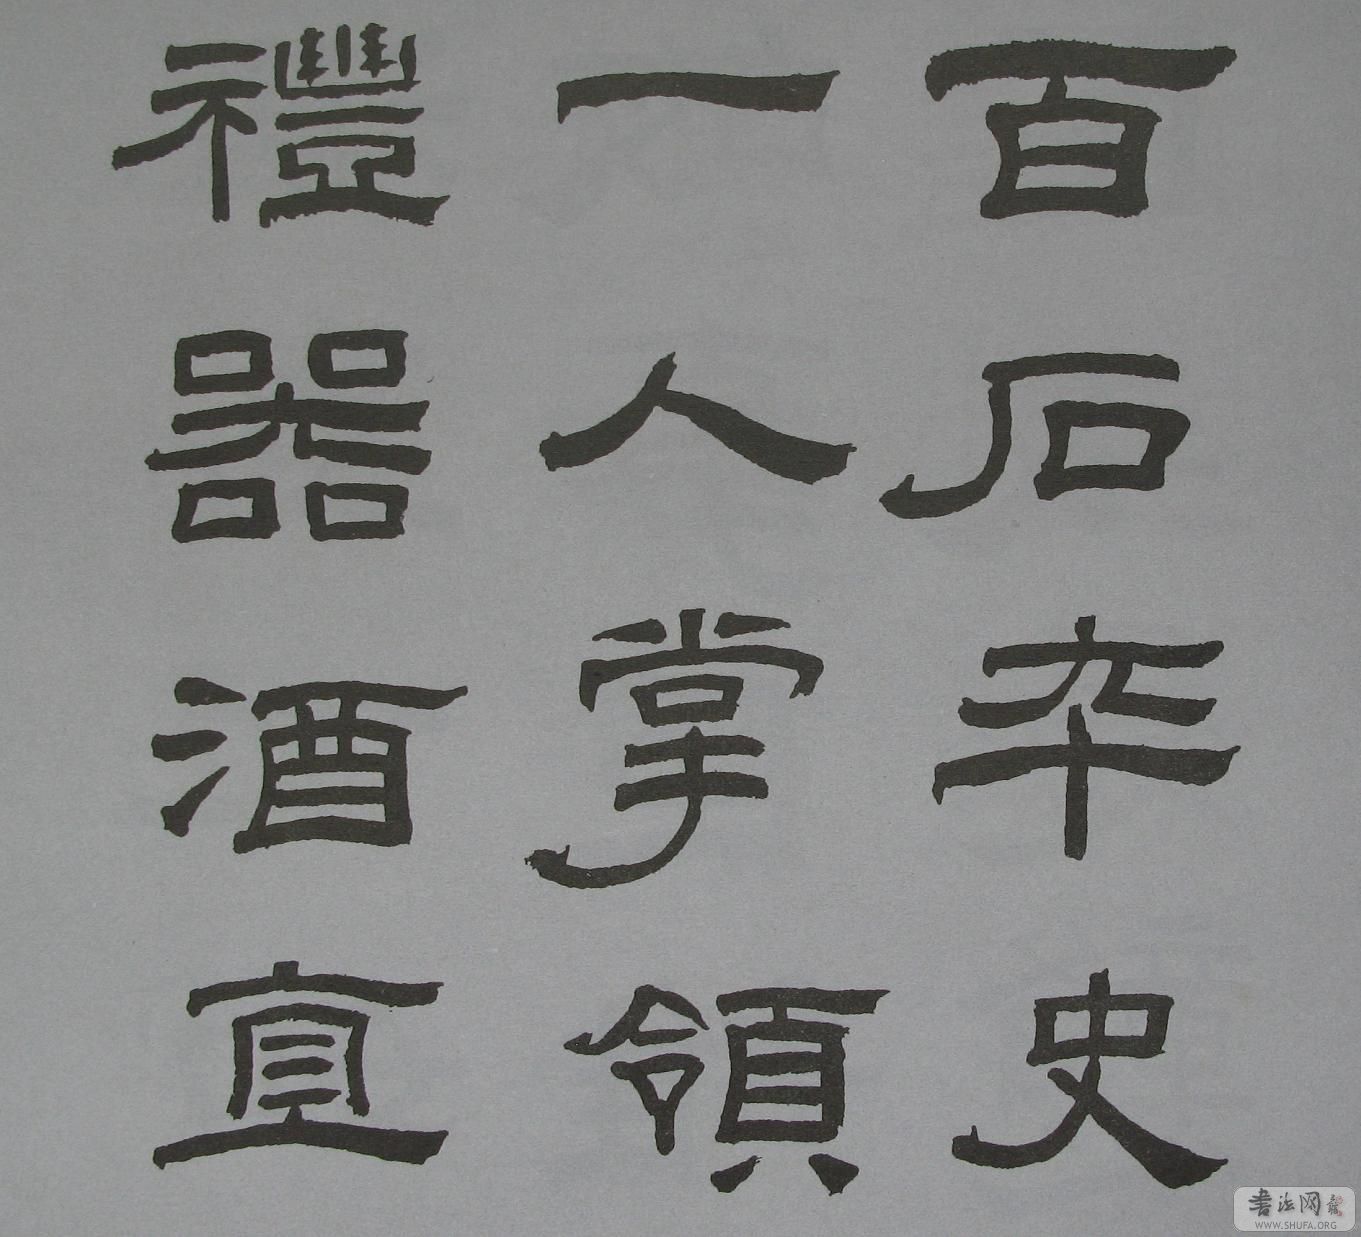 百石卒史
一人掌領
禮器酒直
书法网
WWW.SHUFA.ORG